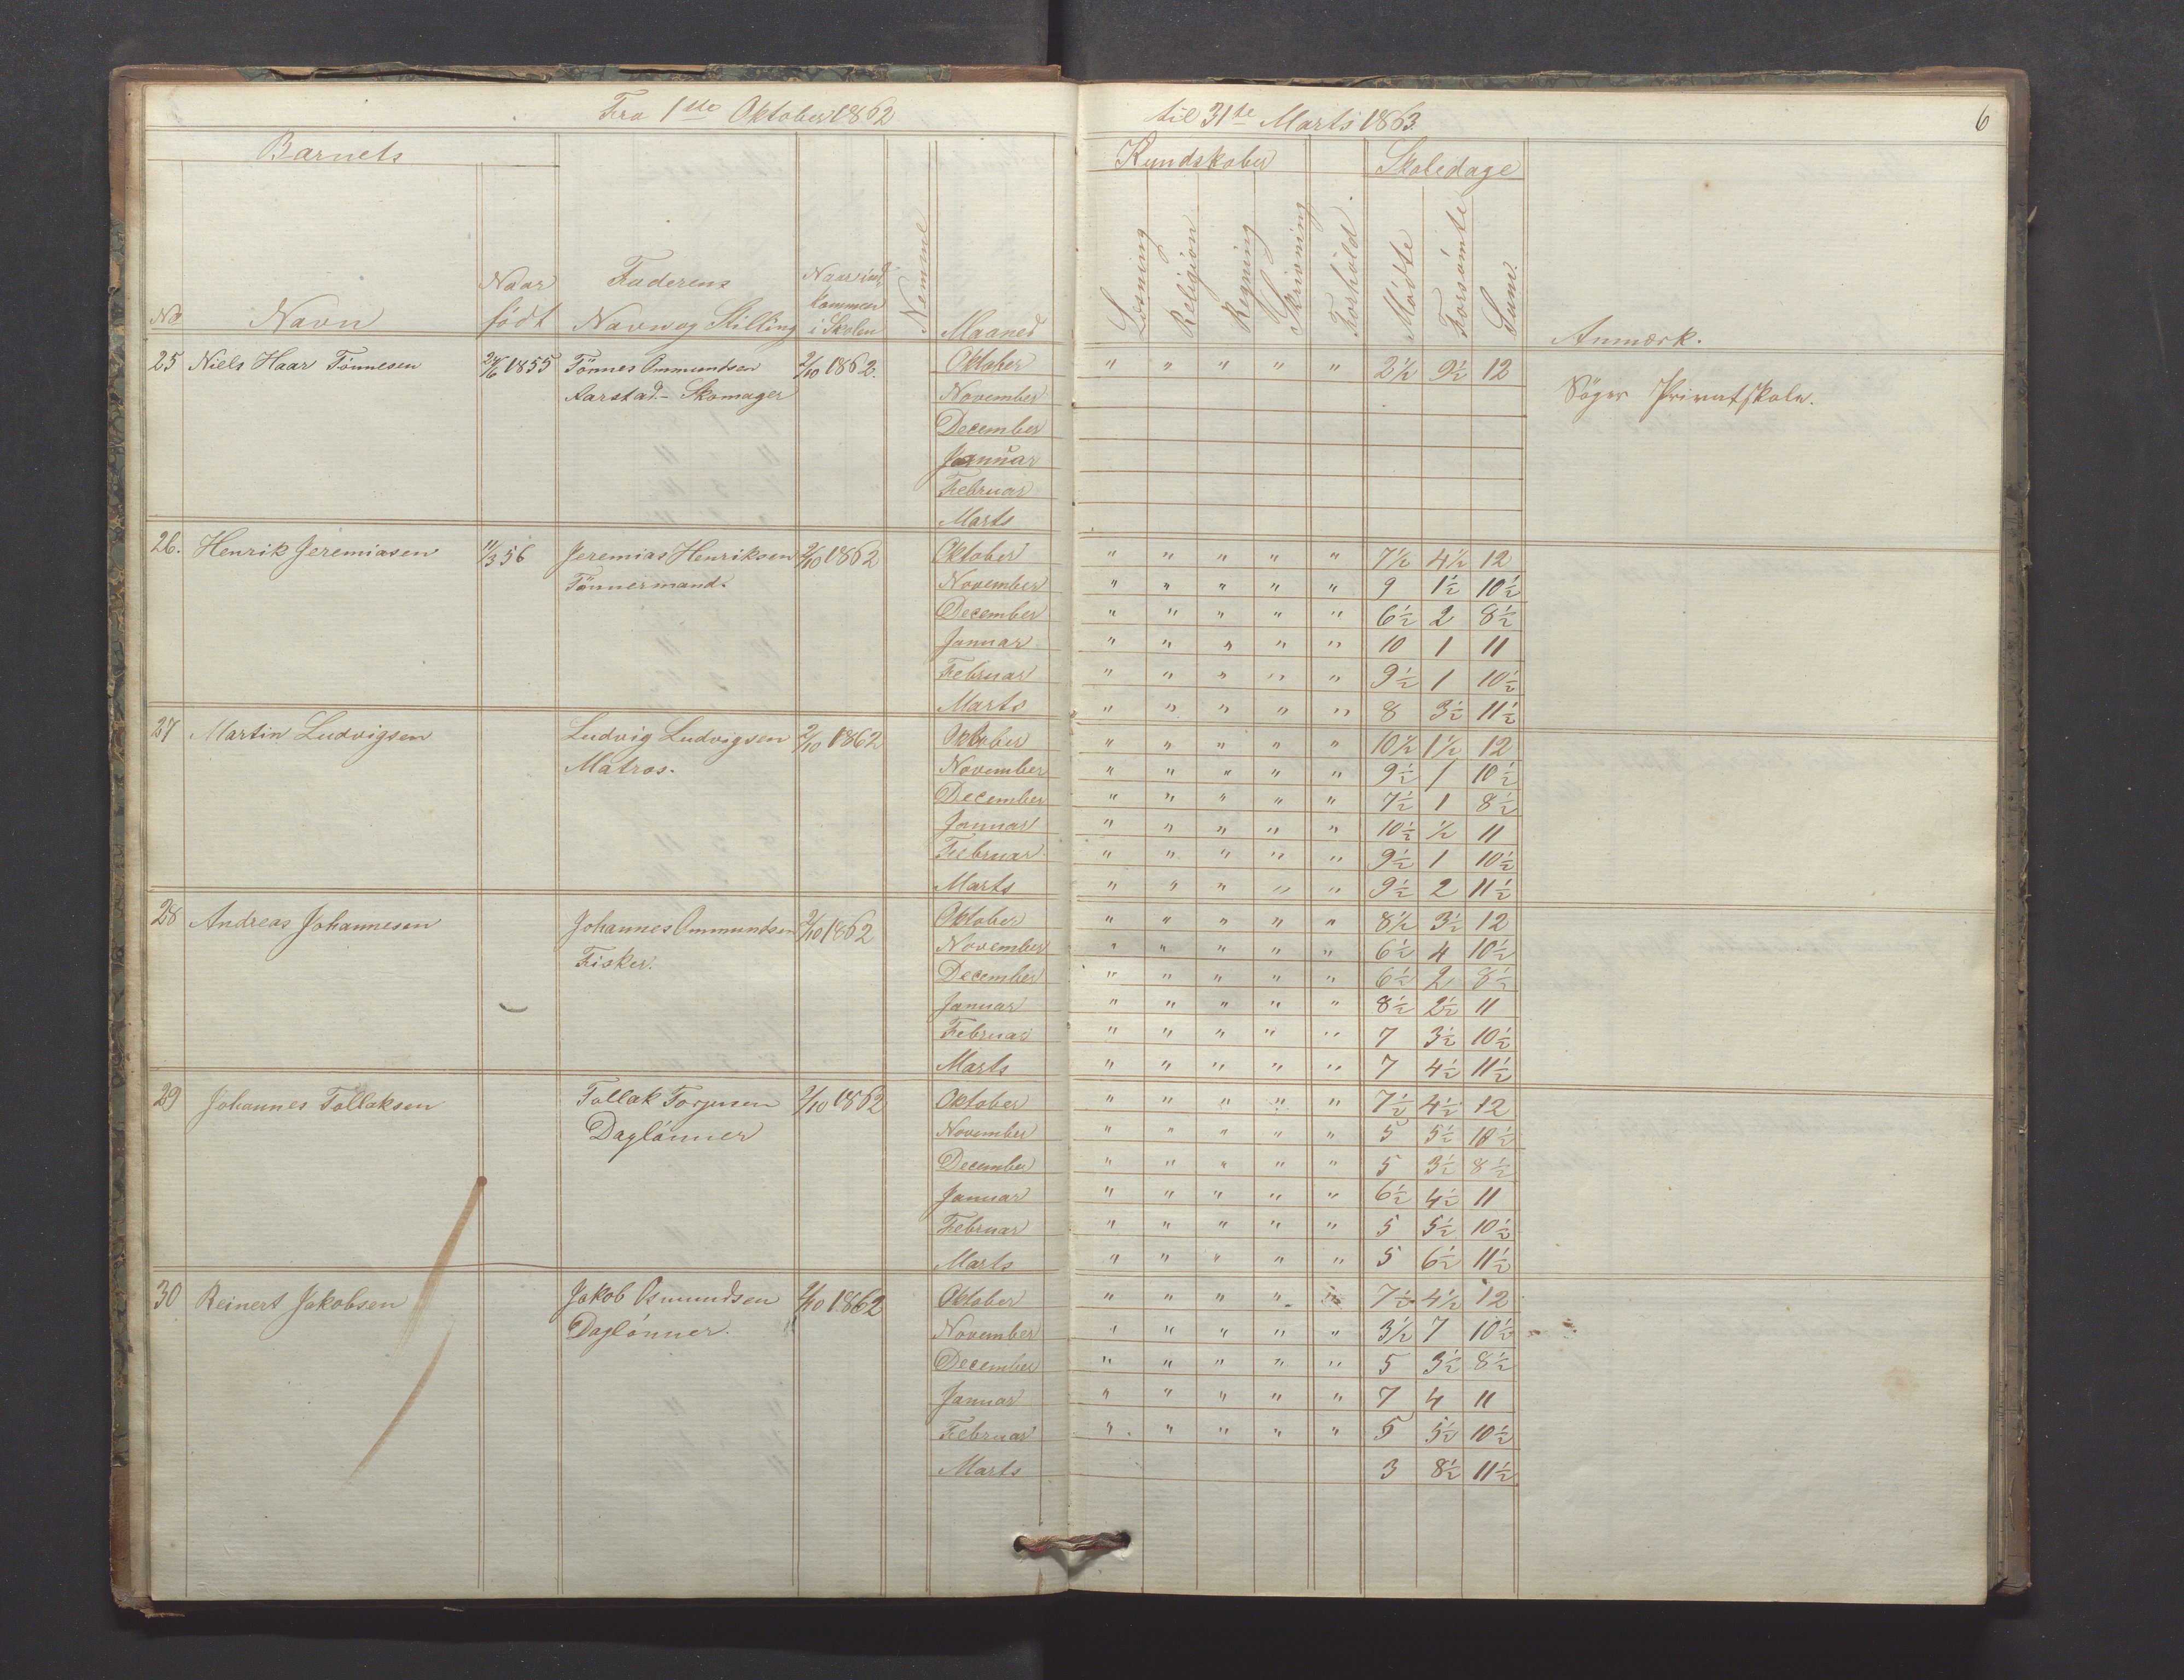 Fra 1ste Oktober 1862 til 31te Marts 1863.
6
Barnets
Kundskaber Skoledage
No Navn Naar født Faderens Navn og Stilling Naar ind kommen i Skolen Nemme Maaned Læsning Religion Regning Skrivning Forhold Mödte Forsömte Sum. Anmærk.
25 Niels Haar Tönnesen 1855 Tönnes Ommundsen 2/10 1862. Oktober " " " " " 2½ 9½ 12
Aarstad - Skomager November Söger Privatskole.
December
Januar
Februar
Marts
26. Henrik Jeremiasen 11/3 56 Jeremias Henriksen 2/10 1862 Oktober " " " " " 7½ 4½ 12
Tönnermand. November " " " " " 9 1½ 10½
December " " " " " 6½ 2 8½
Januar " " " " " 10 1 11
Februar " " " " " 9½ 1 10½
Marts " " " " " 8 3½ 11½
27 Martin Ludvigsen Ludvig Ludvigsen 2/10 1862 Oktober " " " " " 10½ 1½ 12
Matros. November " " " " " 9½ 1 10½
December " " " " " 7½ 1 8½
Januar " " " " " 10½ ½ 11
Februar " " " " " 9½ 1 10½
Marts " " " " " 9½ 2 11½
28 Andreas Johannesen Johannes Ommundsen 2/10 1862 Oktober " " " " " 8½ 3½ 12
Fisker. November " " " " " 6½ 4 10½
December " " " " " 6½ 2 8½
Januar " " " " " 8½ 2½ 11
Februar " " " " " 7 3½ 10½
Marts " " " " " 7 4½ 11½
29 Johannes Tollaksen Tollak Torjesen 2/10 1862 Oktober " " " " " 7½ 4½ 12
Daglönner November " " " " " 5 5½ 10½
December " " " " " 5 3½ 8½
Januar " " " " " 6½ 4½ 11
Februar " " " " " 5 5½ 10½
Marts " " " " " 5 6½ 11½
30 Reinert Jakobsen Jakob Osmundsen 2/10 1862 Oktober " " " " " 7½ 4½ 12
Daglönner. November " " " " " 3½ 7 10½
December " " " " " 5 3½ 8½
Januar " " " " " 7 4 11
Februar " " " " " 5 5½ 10½
Marts 3 8½ 11½